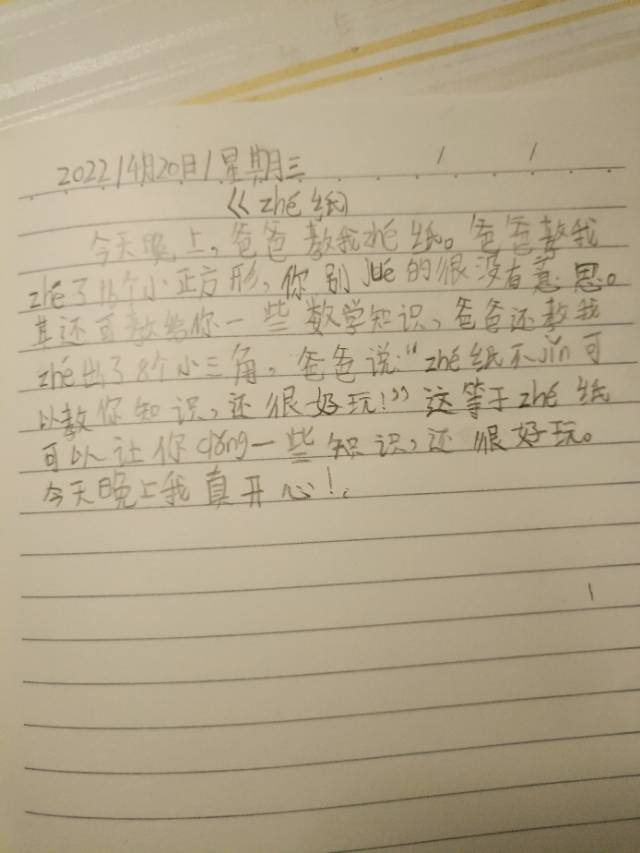 2022/4月20日/星期三
《zhé纸》
今天晚上，爸爸教我zhé纸。爸爸教我
zhé了16个小正方形，你别jué的很没有意思。
其还可教给你一些数学知识，爸爸还教我
zhé出了8个小三角，爸爸说：“zhé纸不jǐn可
以教你知识，还很好玩！”这等于zhé纸
可以让你dǒng一些知识，还很好玩。
今天晚上我真开心！